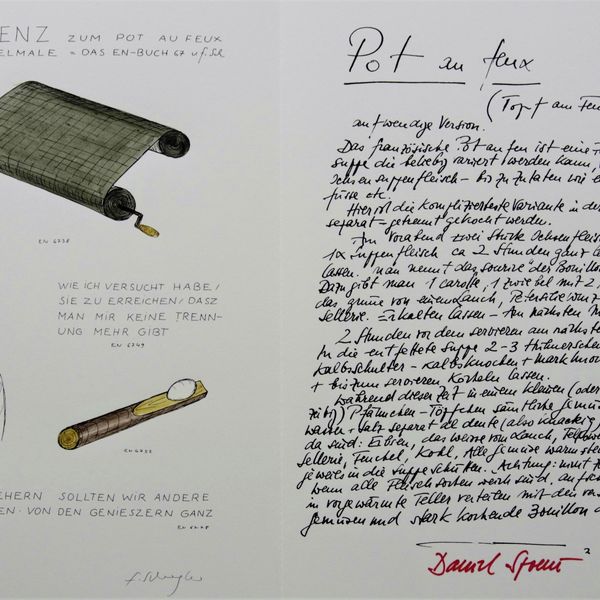 ENZ ZUM POT AU FEUX
ELMALE = DAS EN-BUCH 67
EN 6738
WIE ICH VERSUCHT HABE/
SIE ZU ERREICHEN/DASZ
MAN MIR KEINE TRENN-
UNG MEHR GIBT
EN 6749
EHERN SOLLTEN WIR ANDERE
EN · VON DEN GENIESZERN GANZ
Pot au feux
(Topf am Feu
aufwendige Version.
Das französische Pot au feu ist eine
Suppe die beliebig variert werden kann,
Ochsensuppenfleisch – bis zu Zutaten wie
füsse etc.
Hier ist die komplizierteste Variante in de
separat – getrennt gekocht werden.
Am Vorabend zwei Stück Ochsenfleisch
1x Suppenfleisch ca 2 Stunden ganz
lassen. man nennt das der Bouillon
Dazu gibt man 1 carotte, 1 zwiebel mit 2
das grüne von einem Lauch, Petersilie
Sellerie. Erkalten lassen – Am nächsten
2 Stunden vor dem servieren am nächste
In die entfettete Suppe 2-3 Hühner
Kalbsschulter – Kalbsknochen + mark
+ bis zum servieren Köcheln lassen.
während dieser Zeit in einem kleinen (oder
Pfännchen – Töpfchen sämtliche gemüs
wasser + Salz separat al dente (also knackig
da sind: das weisse von Lauch,
Sellerie, Fenchel, Kohl. Alle gemüse
jeweils in die Suppe schütten. Achtung:
wenn alle Fleischsorten weich sind,
in vorgewärmte Teller verteilen mit den
gemüsen und stark kochende Bouillon
Daniel Spoerri